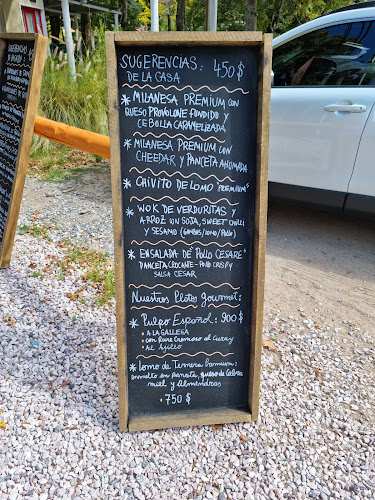 SUGERENCIAS: 450$
DE LA CASA
* MILANESA PREMIUM CON
QUESO PROVOLONE FUNDIDO Y
CEBOLLA CARAMELIZADA
* MILANESA PREMIUM CON
CHEEDAR Y PANCETA AHUMADA
* CHIVITO DE LOMO "PREMIUM"
* WOK DE VERDURITAS Y
ARROZ CON SOJA, SWEET CHILI
Y SESAMO (GAMBAS/LOMO/POLLO)
* ENSALADA DE "POLLO CESARE"
PANCETA CROCANTE - PAND CRISPY
SALSA CESAR
Nuestros Platos Gourmet:
* Pulpo Español: 900$
• A LA GALLEGA
• con Pure Cremoso al Curry
• Al Ajillo
* Lomo de Ternera Premium:
envuelto en panceta, queso de Cabra
miel y Almendras
• 750$